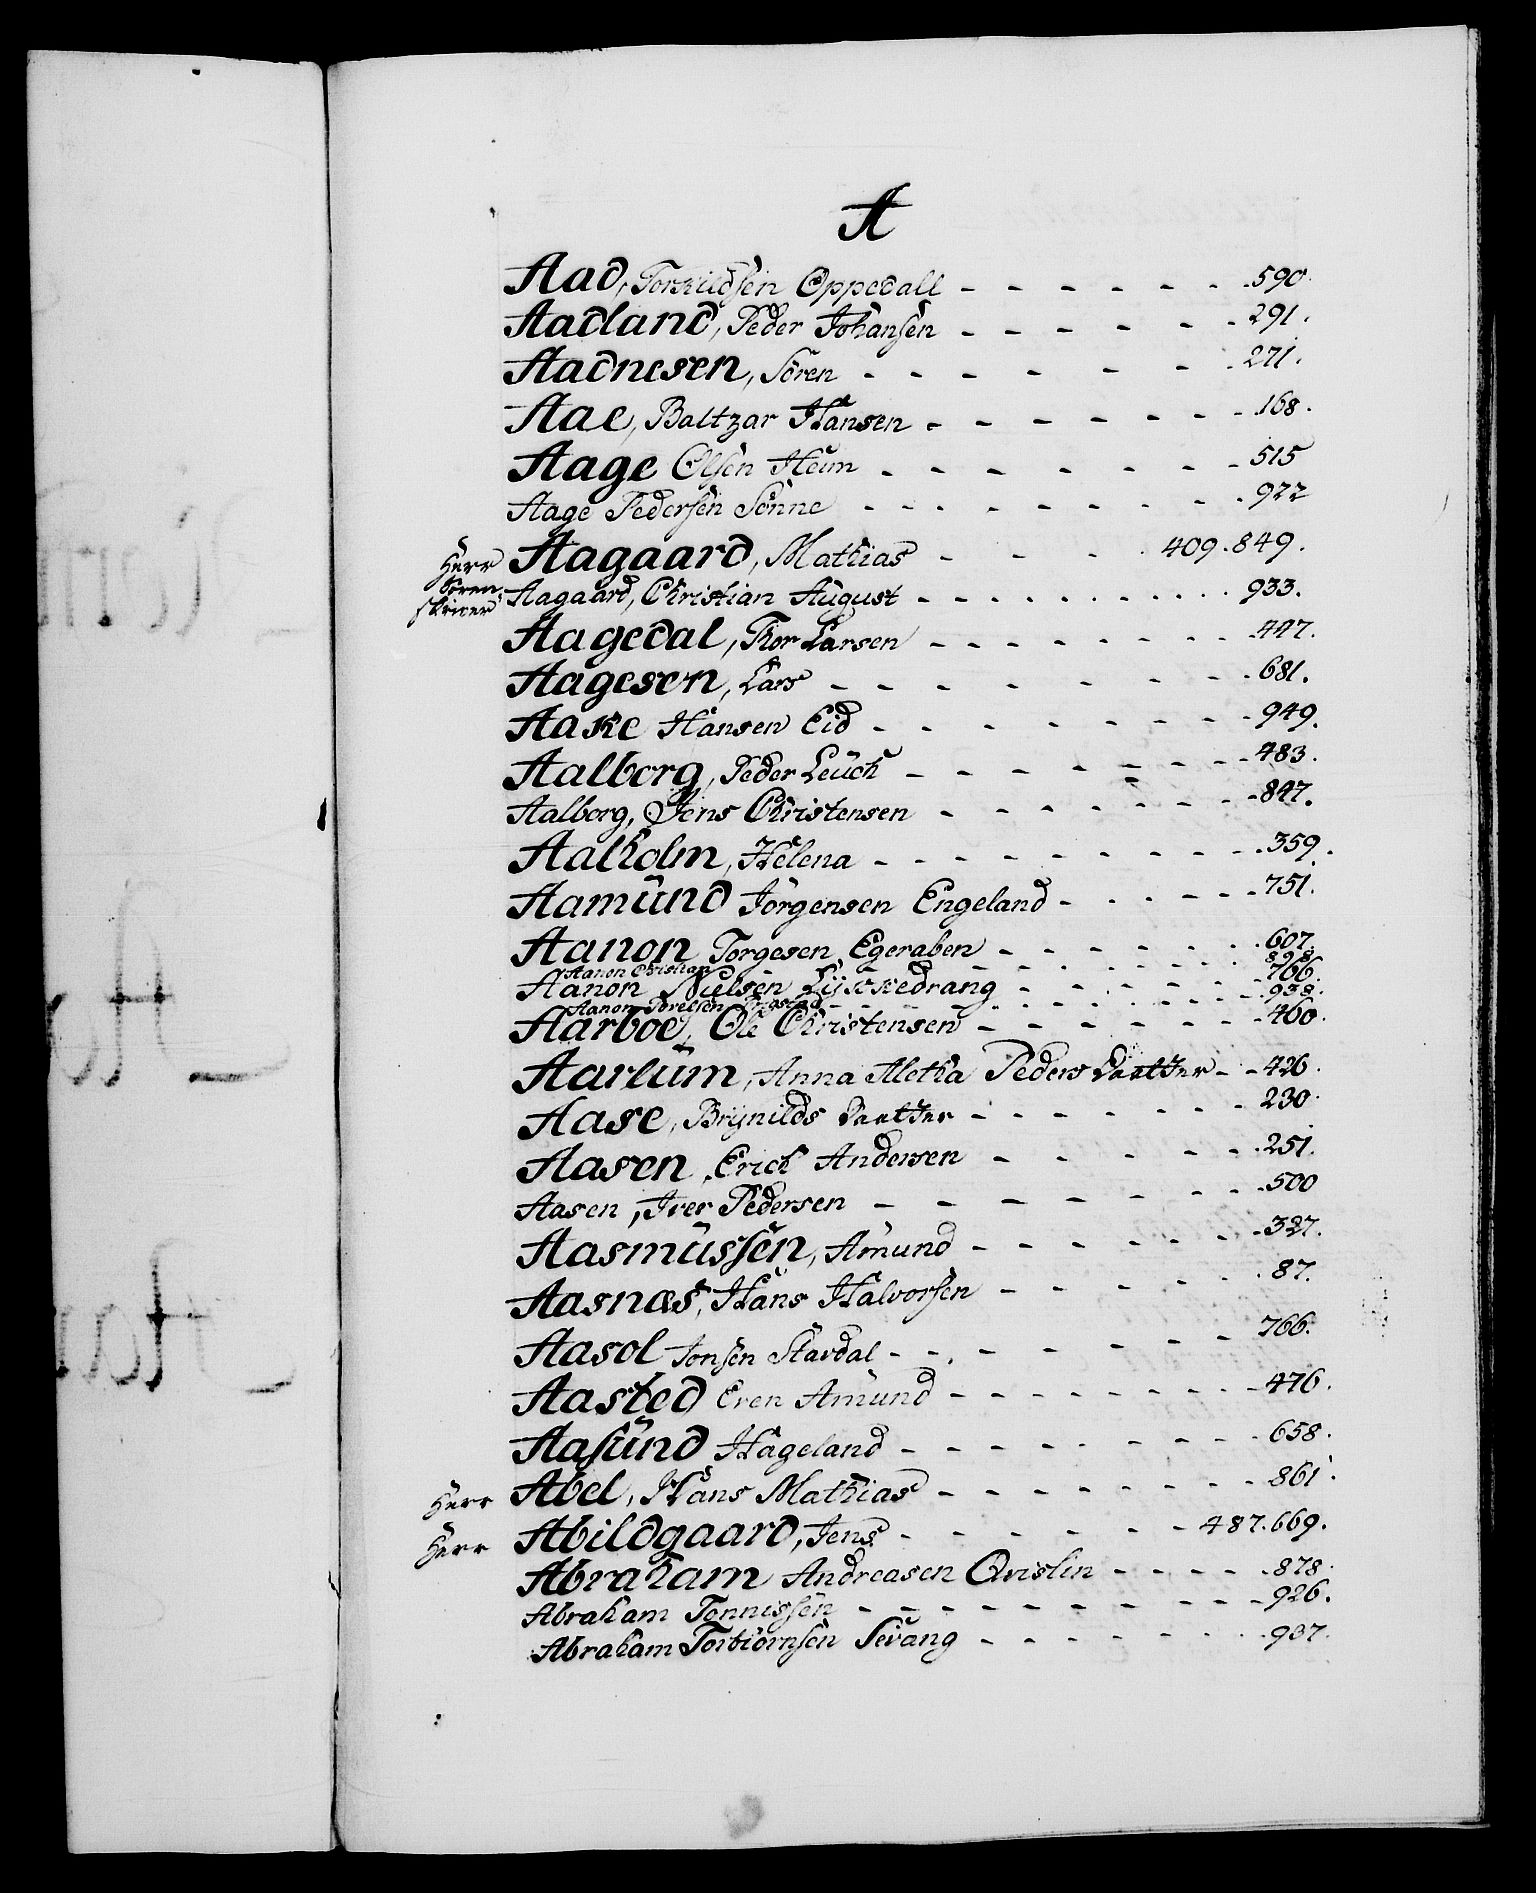 A
Aad, Torkildsen Oppedall - - - - - - - 590.
Aadland, Peder Johansen - - - - - - 291.
Aadnesen, Sören - - - - - - - 271.
Aae, Baltzar Hansen - - - - - - - 168.
Aage Olsen Heim - - - - - - - 515
Aage Pedersen Sönne - - - - - - - - 922
Herr Aagaard, Mathias - - - - 409. 849.
Soren-
skriver Aagaard, Christian August - - - - - - - - - 933.
Aagedal, Thor Larsen - - - - - - - - 447.
Aagesen, Lars - - - - - - - - 681.
Aake Hansen Eid - - - - - - - - 949.
Aalborg, Peder Leüch - - - - - - - 483.
Aalborg, Jens Christensen - - - - - - - - 847.
Aalholm, Helena - - - - - - - - - 359.
Aamünd Jörgensen Engeland - - - - - - 751.
Aanon Torgesen Egeraben - - - - - - - 607.
Aanon Christian - - - - - - 898.
Aanon Nielsen Lyckkedrang - - - - - - - 766.
Aanon Torelsen - - - - - - 938.
Aarboe, Ole Christensen - - - - - - - 460.
Aarlüm, Anna Aletha Peders Daatter - - 426.
Aase, Brÿnilds Daatter - - - - - - - 230.
Aasen, Erich Andersen - - - - - - 251.
Aasen, Iver Pedersen - - - - - - - 500
Aasmüssen, Amund - - - - - - - 327.
Aasnæs, Hans Halvorsen - - - - - - 87.
Aasol Jonsen Stavdal - - - - - - - 766.
Aasted Even Amund - - - - - - - - 476.
Aasünd Hageland - - - - - - - - 658.
Herr Abel, Hans Mathias - - - - - - - - 861.
Herr Abildgaard, Jens - - - - - - - 487. 669.
Abraham Andreasen Qvislin - - - - - 878.
Abraham Tönnissen - - - - - - - - - 926.
Abraham Torbiörnsen Sevang - - - - - - - 937.